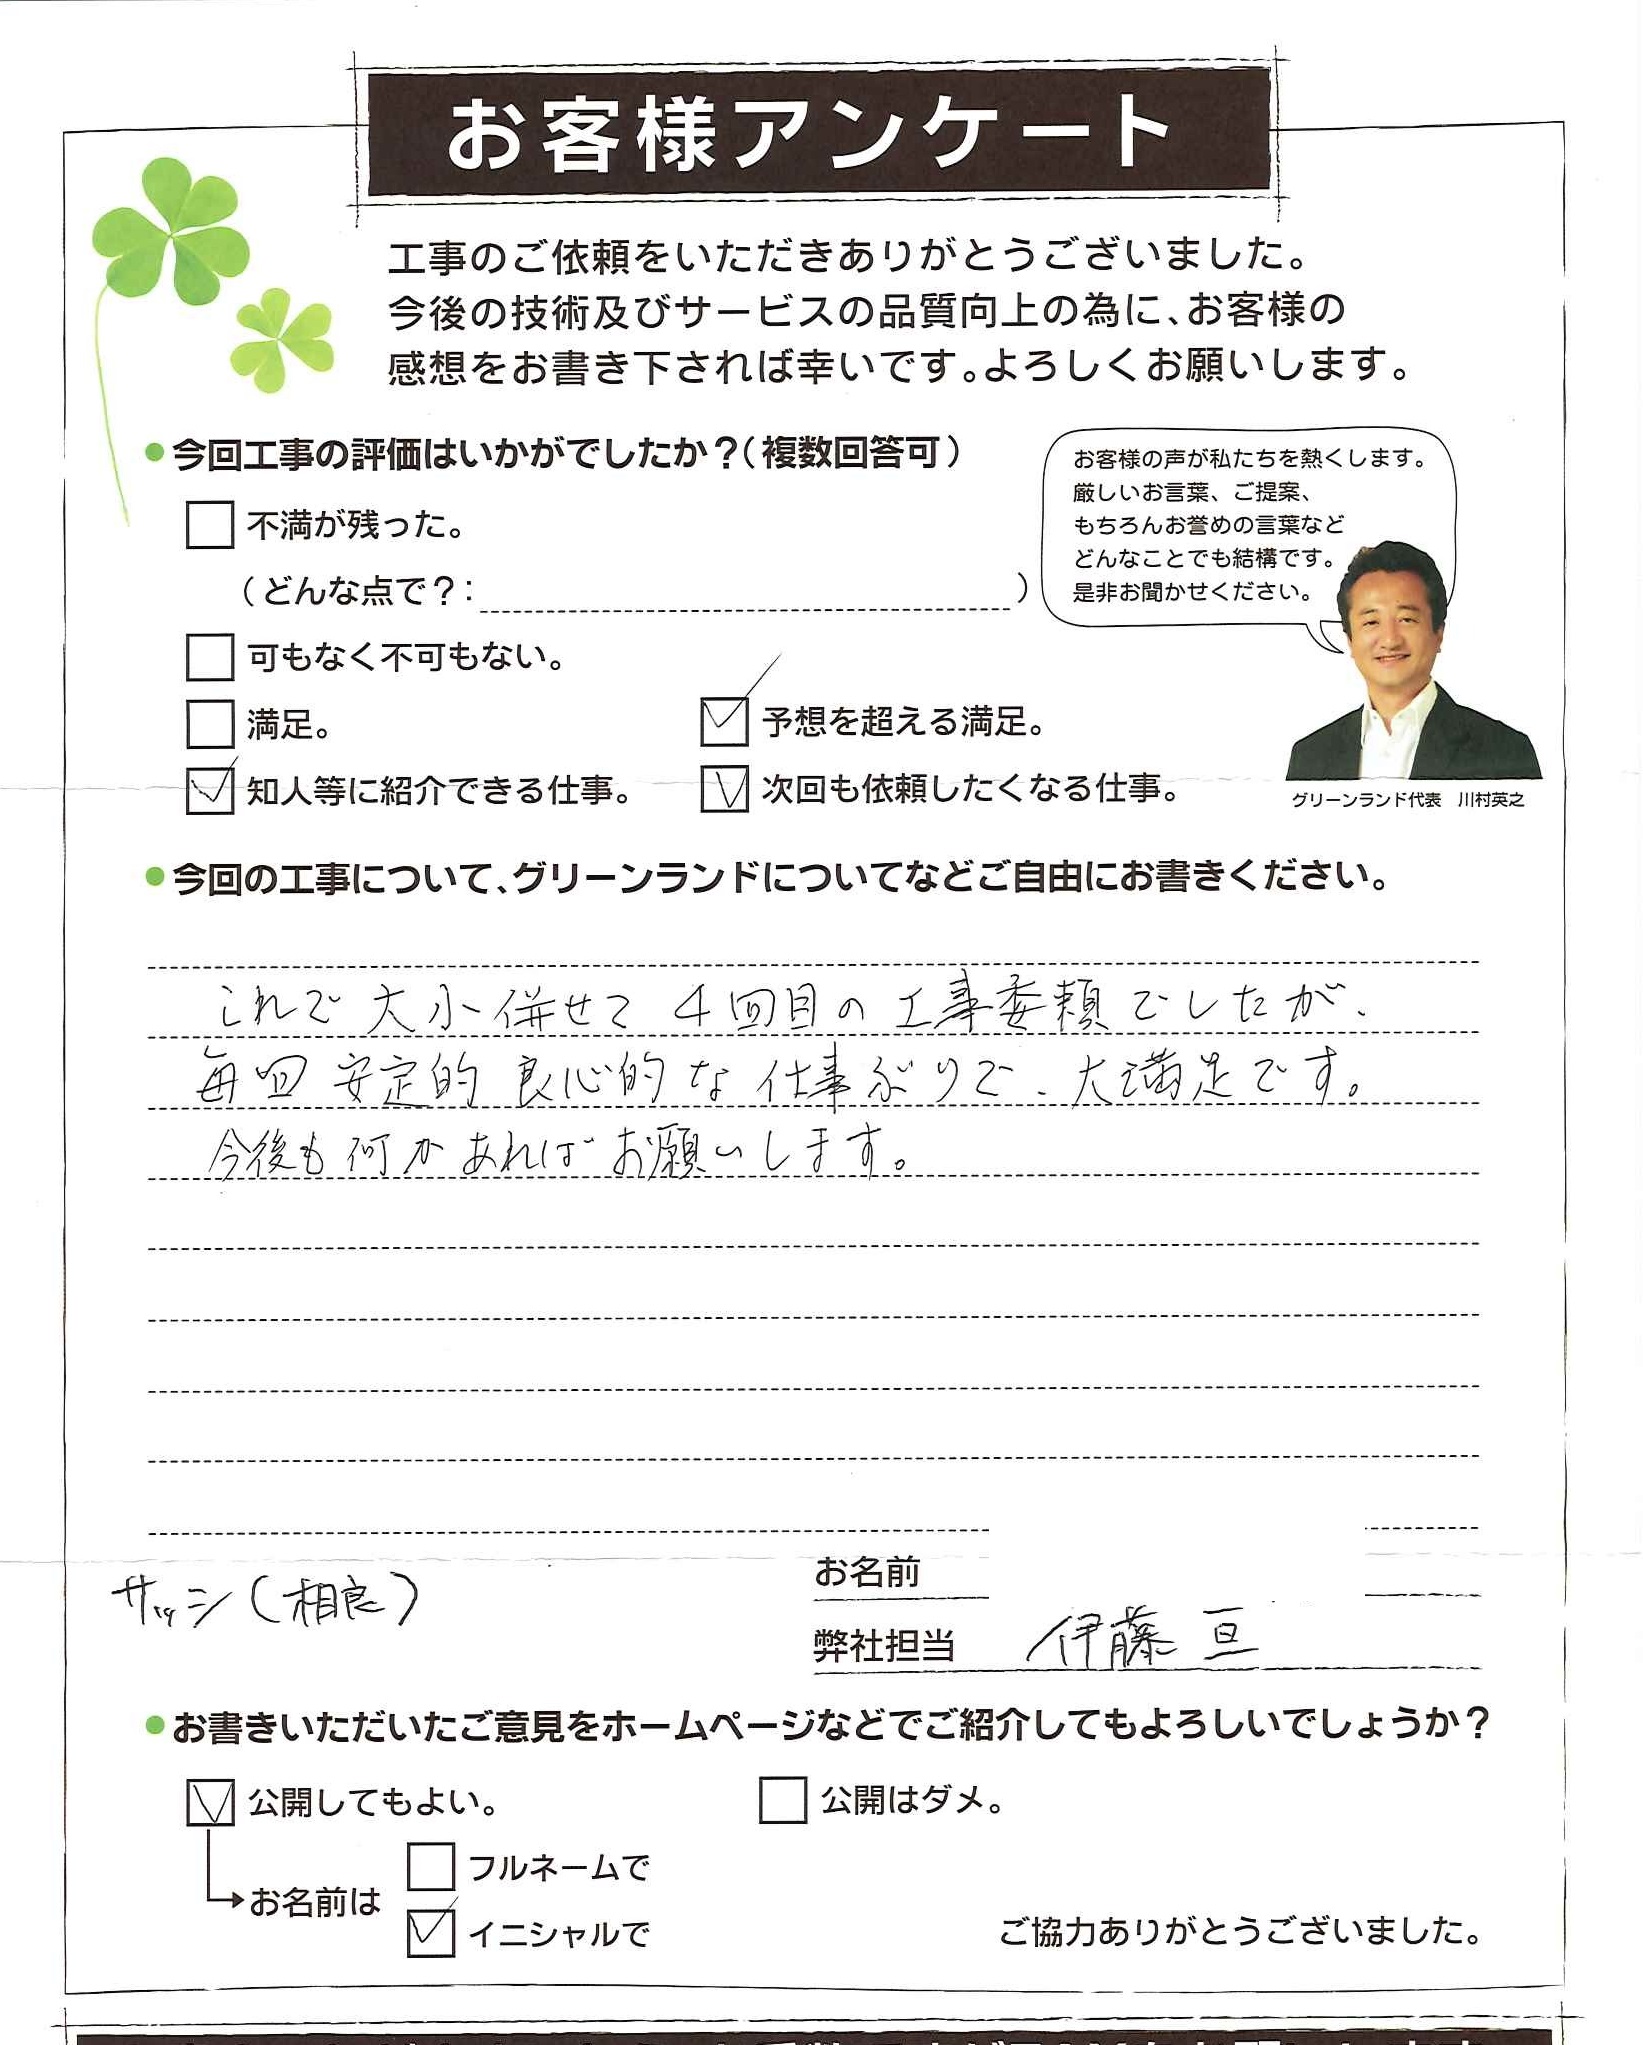 お客様アンケート
工事のご依頼をいただきありがとうございました。
今後の技術及びサービスの品質向上の為に、お客様の
感想をお書き下されば幸いです。よろしくお願いします。
●今回工事の評価はいかがでしたか？（複数回答可）
お客様の声が私たちを熱くします。
厳しいお言葉、ご提案、
もちろんお誉めの言葉など
どんなことでも結構です。
是非お聞かせください。
不満が残った。
（どんな点で？：　）
可もなく不可もない。
満足。
予想を超える満足。
知人等に紹介できる仕事。
次回も依頼したくなる仕事。
グリーンランド代表　川村英之
●今回の工事について、グリーンランドについてなどご自由にお書きください。
これで大小併せて4回目の工事委頼でしたが、
毎回安定的良心的な仕事ぶりで、大満足です。
今後も何かあればお願いします。
お名前
サッシ（相良）
弊社担当　伊藤 亘
●お書きいただいたご意見をホームページなどでご紹介してもよろしいでしょうか？
公開してもよい。
公開はダメ。
フルネームで
お名前は
イニシャルで
ご協力ありがとうございました。